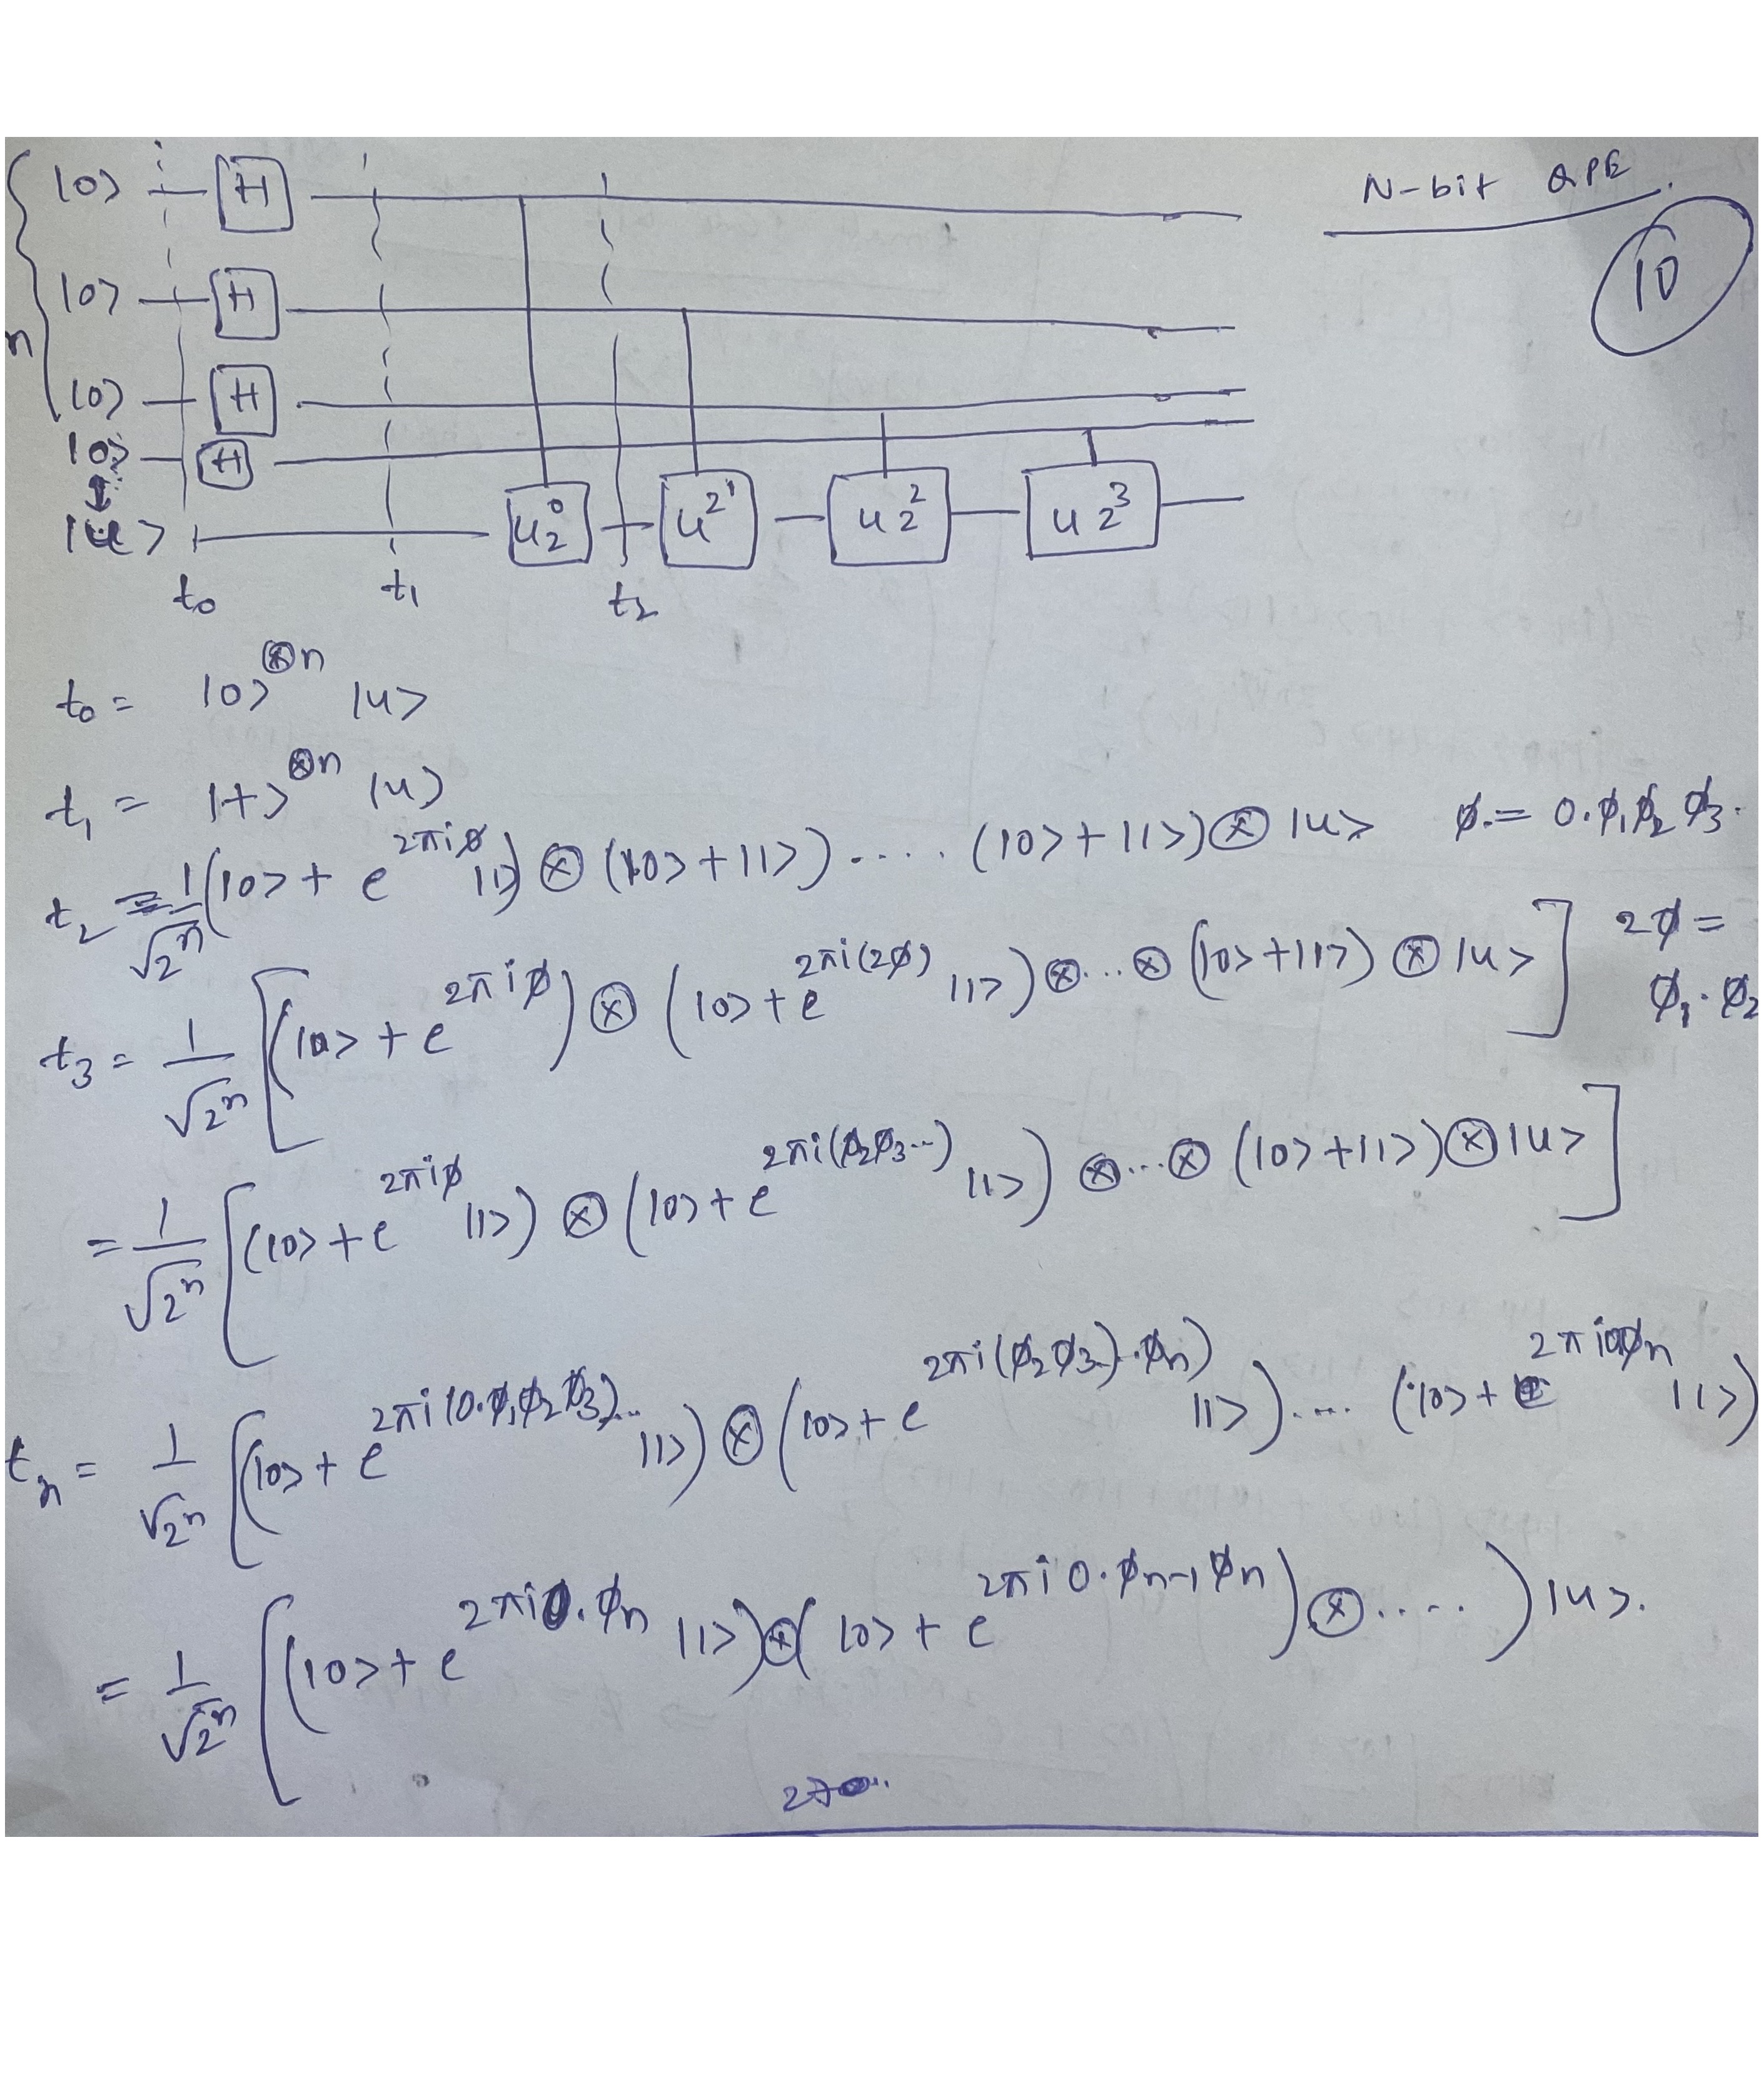 N-bit QPE
10
|0> H
|0> H
n
|0> H
|0> H
|u> U2⁰ U2¹ U2² U2³
t₀ t₁ t₂
t₀ = |0>^⊗n |u>
t₁ = |+>^⊗n |u>
t₂ = 1/√2ⁿ (|0> + e^2πiφ |1>) ⊗ (|0> + |1>) .... (|0> + |1>) ⊗ |u> φ.= 0.φ₁φ₂φ₃.
t₃ = 1/√2ⁿ [(|0> + e^2πiφ) ⊗ (|0> + e^2πi(2φ) |1>) ⊗...⊗ (|0> + |1>) ⊗ |u>] 2φ =
φ₁.φ₂
= 1/√2ⁿ [(|0> + e^2πiφ |1>) ⊗ (|0> + e^2πi(φ₂φ₃...) |1>) ⊗...⊗ (|0> + |1>) ⊗ |u>]
tₙ = 1/√2ⁿ [(|0> + e^2πi(0.φ₁φ₂φ₃)... |1>) ⊗ (|0> + e^2πi(φ₂φ₃)..φₙ) |1>).... (|0> + e^2πi0φₙ |1>)
= 1/√2ⁿ [(|0> + e^2πi0.φₙ |1>) ⊗ (|0> + e^2πi0.φₙ₋₁φₙ) ⊗.....) |u>.